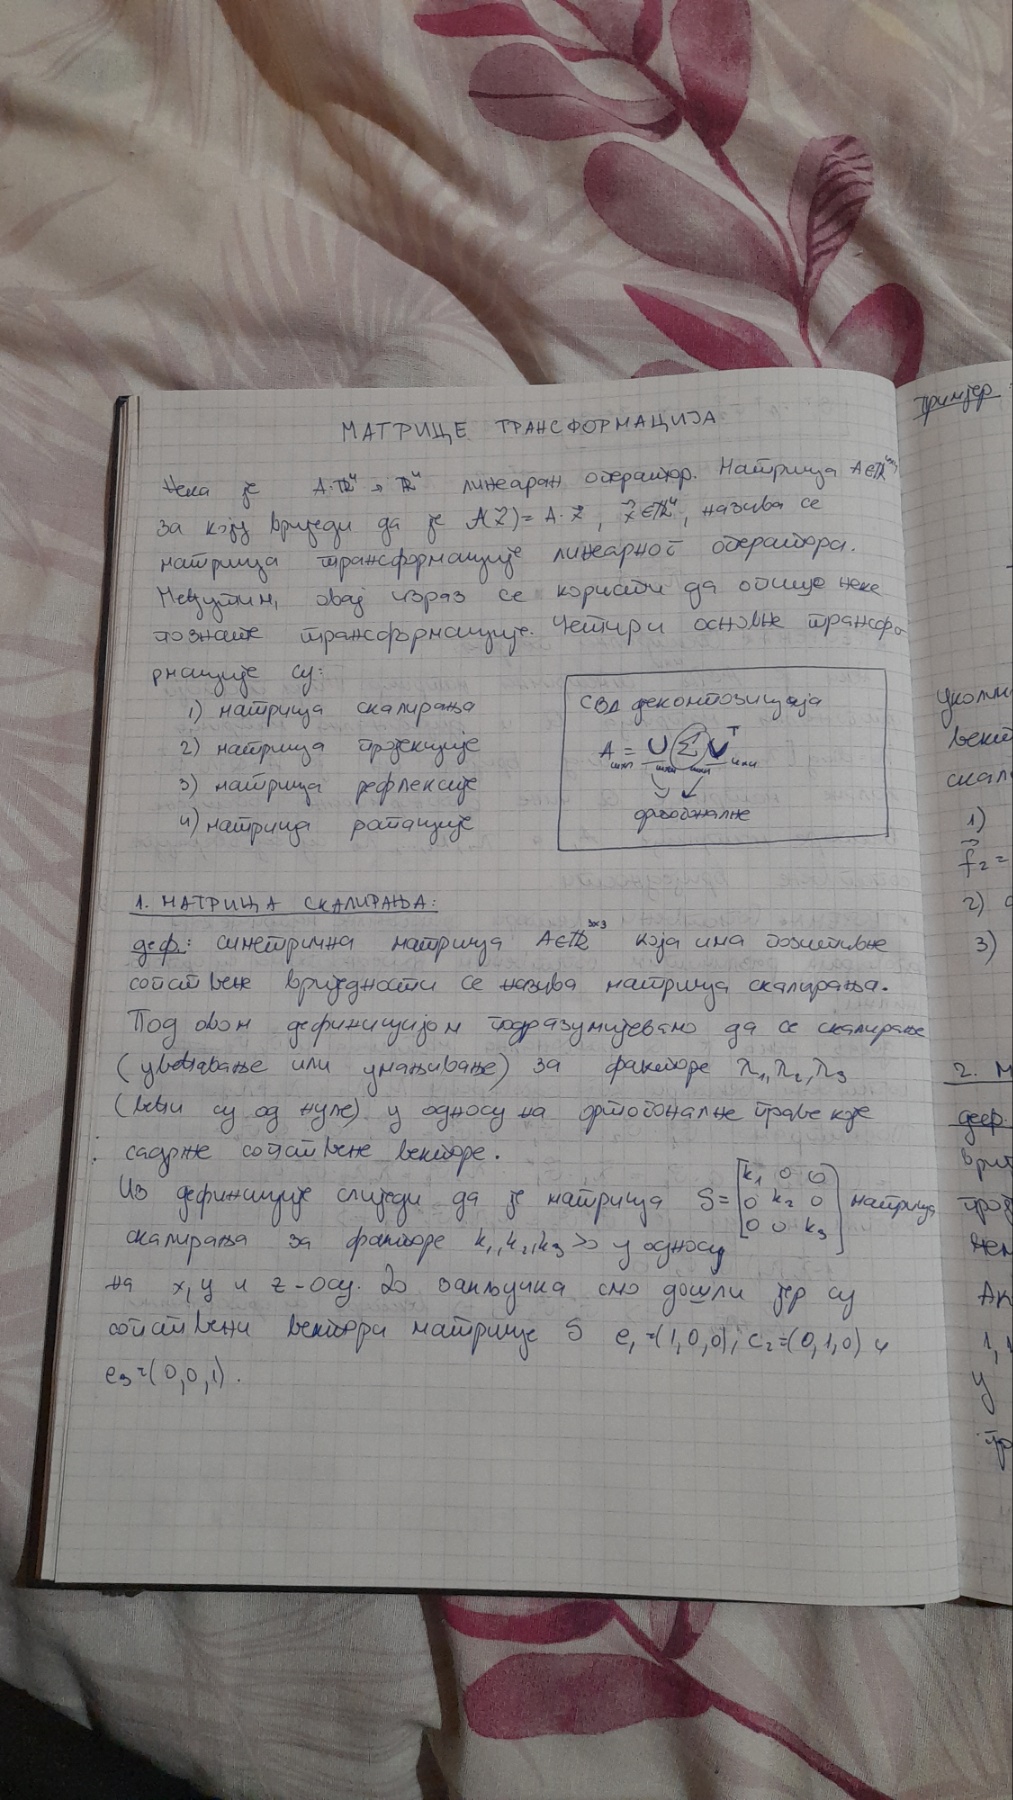 МАТРИЦЕ ТРАНСФОРМАЦИЈА
Нека је A: ℝⁿ → ℝⁿ линеаран оператор. Матрица A∈ℝⁿˣⁿ
за коју вриједи да је A(x⃗) = A·x⃗, x⃗∈ℝⁿ, назива се
матрица трансформације линеарног оператора.
Међутим, овај израз се користи да опише неке
познате трансформације. Четири основне трансфо
рмације су:
1) матрица скалирања
2) матрица пројекције
3) матрица рефлексије
4) матрица ротације
СВД декомпозиција
A = U Σ Vᵀ
ортогоналне
1. МАТРИЦА СКАЛИРАЊА:
деф.: симетрична матрица A∈ℝ³ˣ³ која има позитивне
сопствене вриједности се назива матрица скалирања.
Под овом дефиницијом подразумијевамо да се скалирање
(увећавање или умањивање) за факторе λ₁, λ₂, λ₃
(већи су од нуле) у односу на ортогоналне праве које
садрже сопствене векторе.
Из дефиниције слиједи да је матрица S = [k₁ 0 0
0 k₂ 0
0 0 k₃] матрица
скалирања за факторе k₁, k₂, k₃ > 0 у односу
на x, y и z-осу. До закључка смо дошли јер су
сопствени вектори матрице S e₁=(1,0,0), e₂=(0,1,0) и
e₃=(0,0,1).
Примјер
вект
скал
1)
f⃗₂ =
2)
3)
2. М
деф
Ак
1,
у